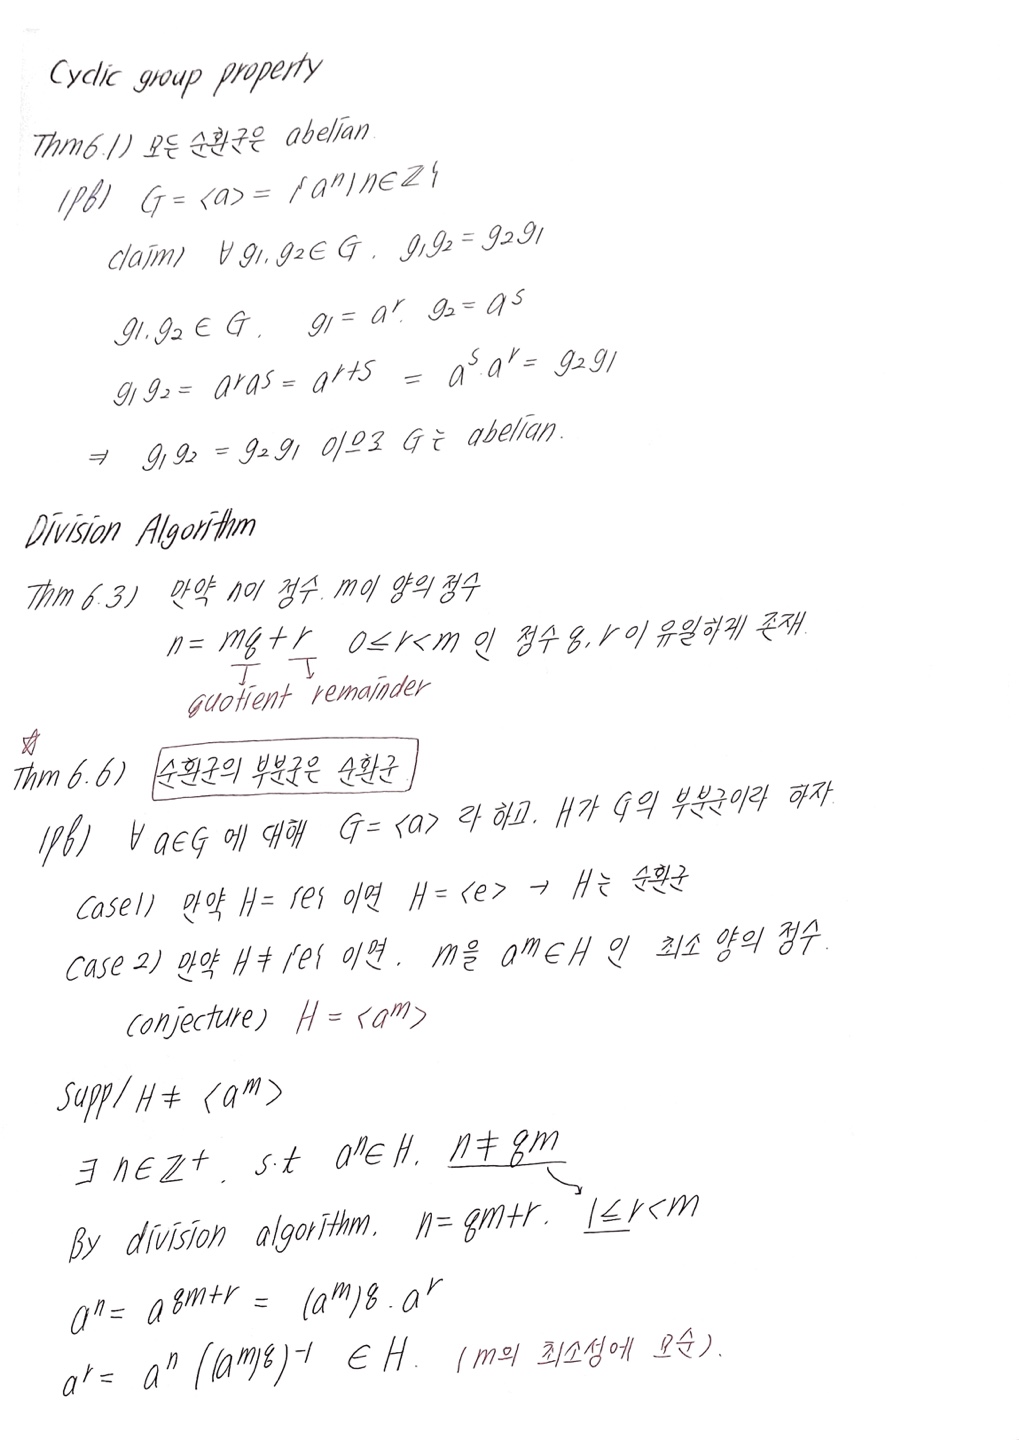 Cyclic group property
Thm 6.1) 모든 순환군은 abelian.
(pf) G = <a> = {aⁿ | n∈ℤ}
claim) ∀ g₁, g₂ ∈ G. g₁g₂ = g₂g₁
g₁, g₂ ∈ G. g₁ = aʳ. g₂ = aˢ
g₁g₂ = aʳaˢ = aʳ⁺ˢ = aˢ·aʳ = g₂g₁
⇒ g₁g₂ = g₂g₁ 이므로 G는 abelian.
Division Algorithm
Thm 6.3) 만약 n이 정수. m이 양의 정수
n = mq + r 0≤r<m 인 정수 q, r이 유일하게 존재.
quotient remainder
☆
Thm 6.6) 순환군의 부분군은 순환군
(pf) ∀ a∈G 에 대해 G = <a> 라 하고. H가 G의 부분군이라 하자.
Case 1) 만약 H = {e} 이면 H = <e> → H는 순환군
Case 2) 만약 H ≠ {e} 이면. m을 aᵐ ∈ H 인 최소 양의 정수.
conjecture) H = <aᵐ>
Supp/ H ≠ <aᵐ>
∃ n∈ℤ⁺. s.t aⁿ∈H. n ≠ qm
By division algorithm. n = qm+r. 1≤r<m
aⁿ = a^(qm+r) = (aᵐ)^q · aʳ
aʳ = aⁿ ((aᵐ)^q)⁻¹ ∈ H. (m의 최소성에 모순).